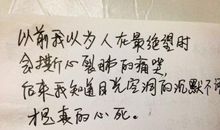 以前我以为人在最绝望时
会撕心裂肺的痛哭，
后来我知道目光空洞的沉默不言
才是真的心死。